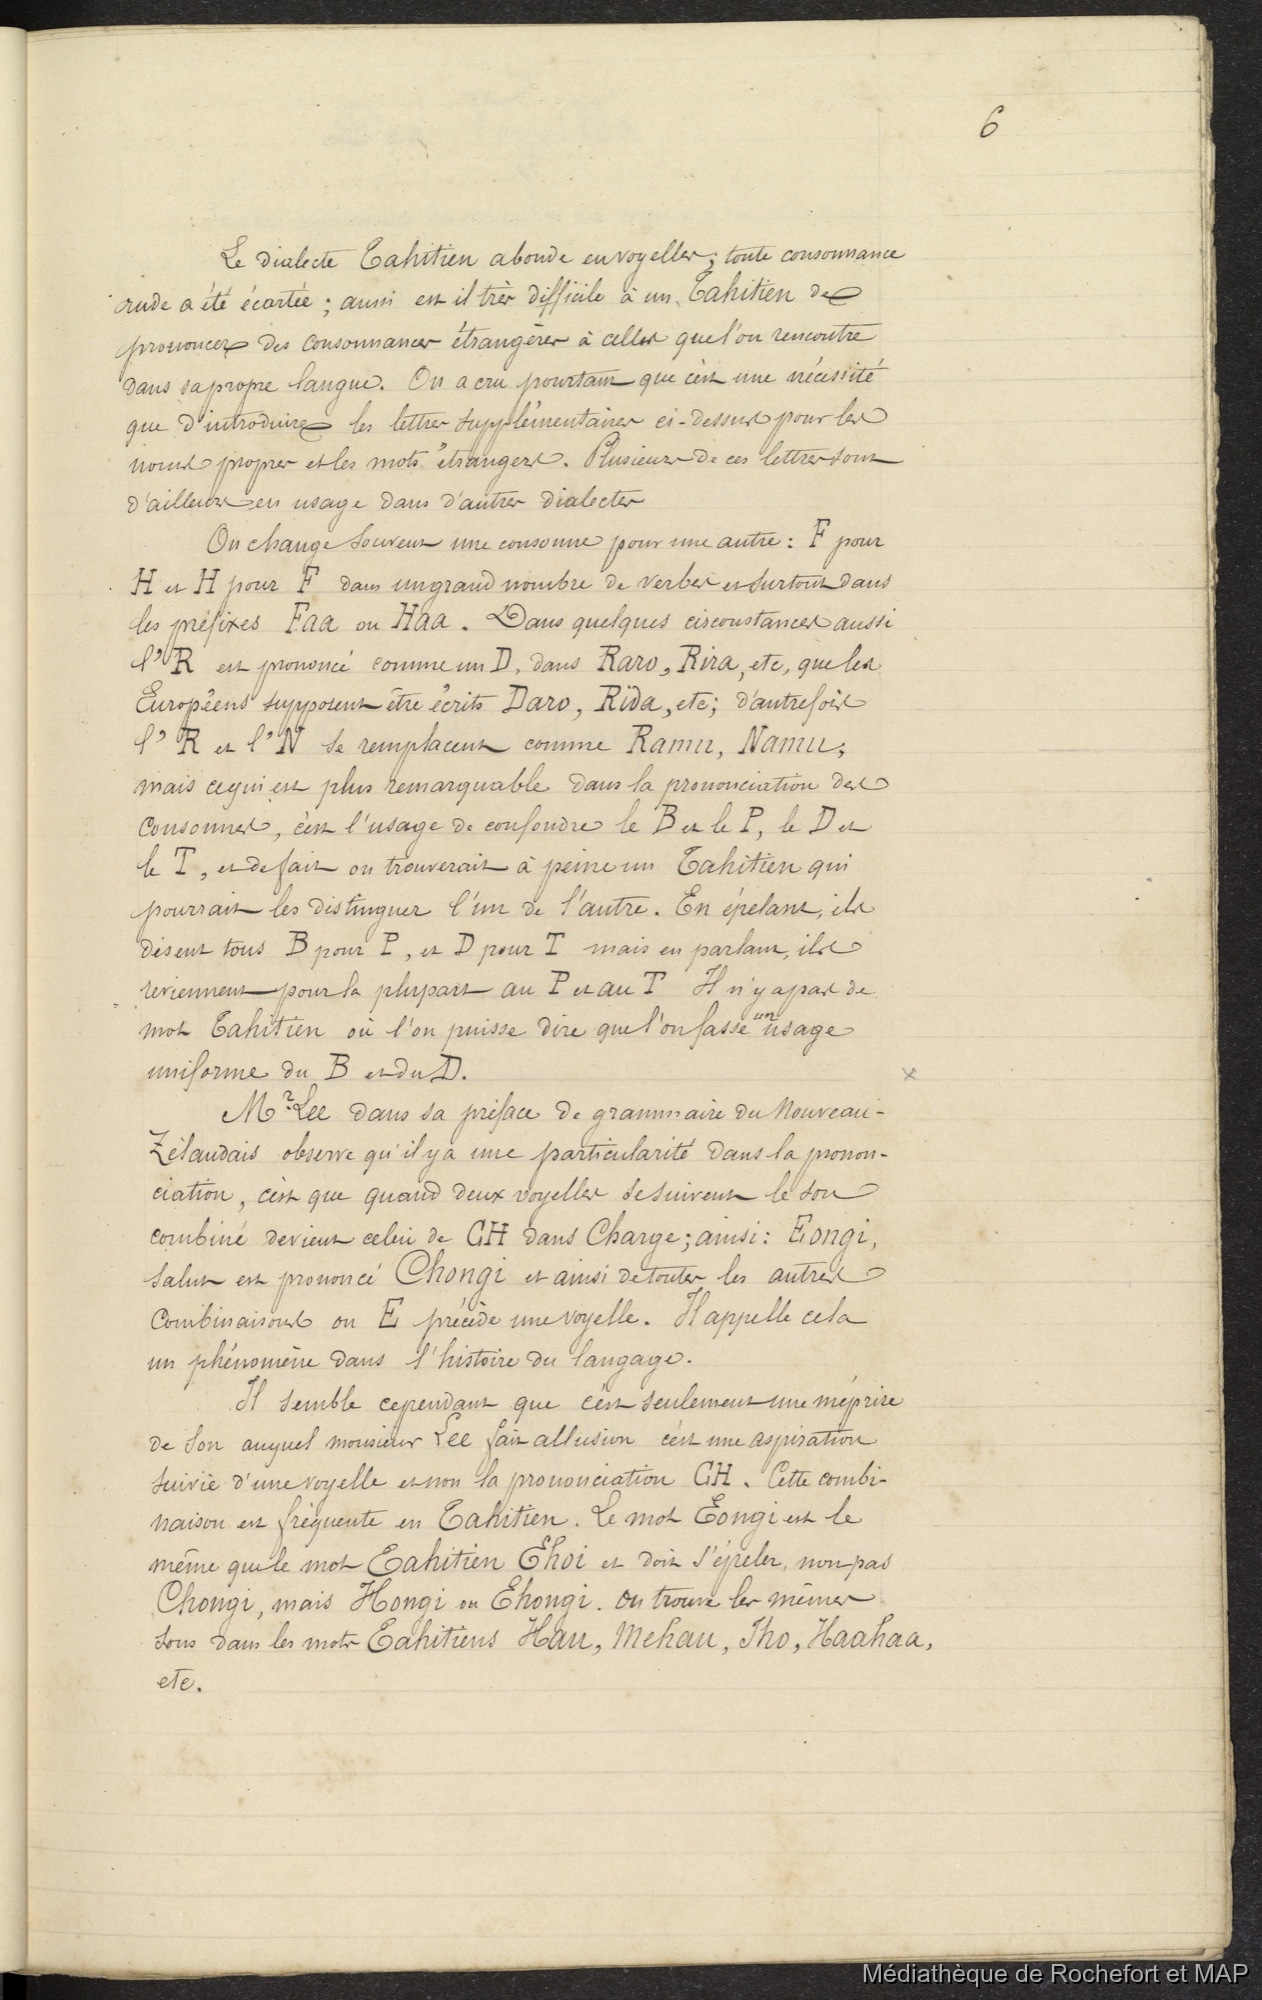 6
Le dialecte Tahitien abonde en voyelles; toute consonnance
rude a été écartée; aussi est il très difficile à un Tahitien de
prononcer des consonnances étrangères à celles que l'on rencontre
dans sa propre langue. On a cru pourtant que c'est une nécessité
que d'introduire les lettres supplémentaires ci-dessus pour les
noms propres et les mots étrangers. Plusieurs de ces lettres sont
d'ailleurs en usage dans d'autres dialectes
On change souvent une consonne pour une autre: F pour
H et H pour F dans un grand nombre de verbes et surtout dans
les préfixes Faa ou Haa. Dans quelques circonstances aussi
l'R est prononcé comme un D, dans Raro, Rira, etc, que les
Européens supposent être écrits Daro, Rida, etc; d'autrefois
l'R et l'N se remplacent comme Ramu, Namu;
mais ce qui est plus remarquable dans la prononciation des
consonnes, c'est l'usage de confondre le B et le P, le D et
le T, et de fait on trouverait à peine un Tahitien qui
pourrait les distinguer l'un de l'autre. En épelant, ils
disent tous B pour P, et D pour T mais en parlant, ils
reviennent pour la plupart au P et au T Il n'y a pas de
mot Tahitien où l'on puisse dire que l'on fasse un usage
uniforme du B et du D.
x
Mr. Lee dans sa préface de grammaire du Nouveau-
Zélandais observe qu'il y a une particularité dans la pronon-
ciation, c'est que quand deux voyelles se suivent le son
combiné devient celui de CH dans Charge; ainsi: Eongi,
salut est prononcé Chongi et ainsi de toutes les autres
combinaisons ou E précède une voyelle. Il appelle cela
un phénomène dans l'histoire du langage.
Il semble cependant que c'est seulement une méprise
de son auquel monsieur Lee fait allusion c'est une aspiration
suivie d'une voyelle et non la prononciation CH. Cette combi-
naison est fréquente en Tahitien. Le mot Eongi est le
même que le mot Tahitien Ehoi et doit s'épeler, non pas
Chongi, mais Hongi ou Ehongi. On trouve les mêmes
sons dans les mots Tahitiens Hau, Mehau, Iho, Haahaa,
etc.
Médiathèque de Rochefort et MAP